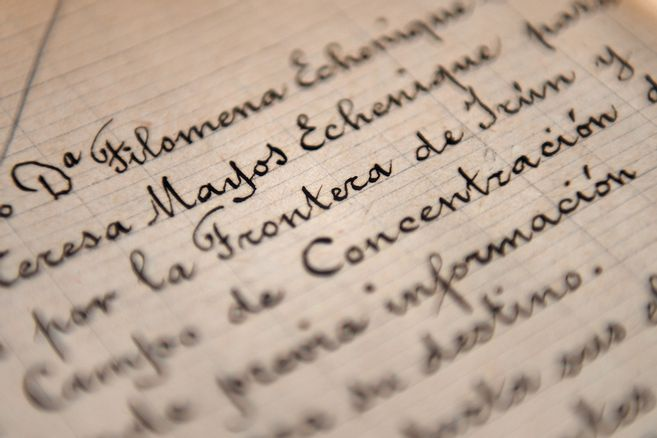 Dª Filomena Echenique
Teresa Mayos Echenique para
por la Frontera de Irún y
Campo de Concentración d
de previa información
su destino.
sus